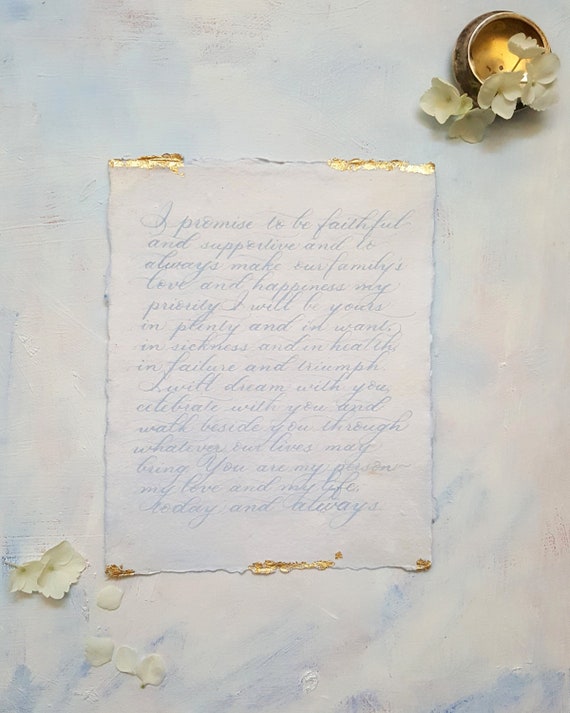 I promise to be faithful
and supportive and to
always make our family's
love and happiness my
priority. I will be yours
in plenty and in want,
in sickness and in health,
in failure and triumph.
I will dream with you,
celebrate with you and
walk beside you through
whatever our lives may
bring. You are my person
my love and my life,
today and always.